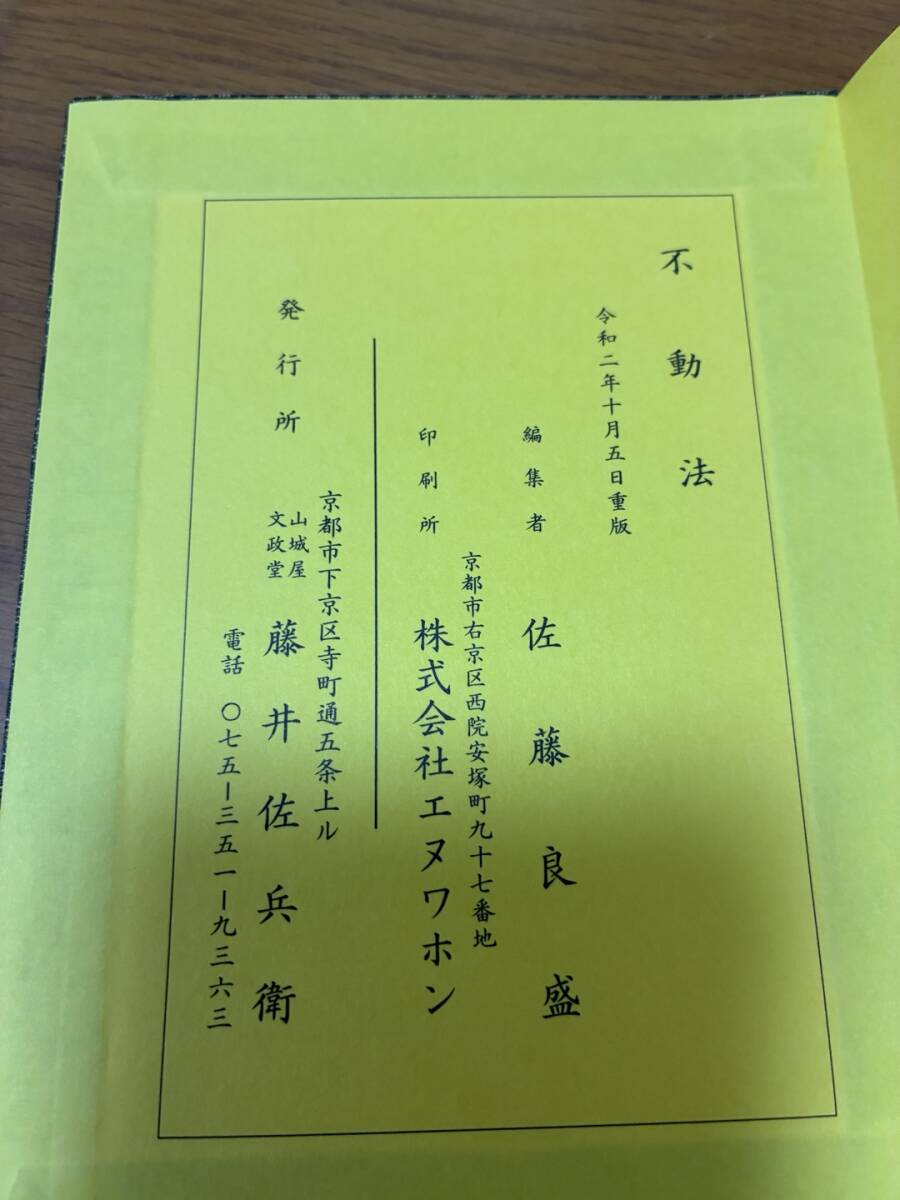 不動法
令和二年十月五日重版
編集者 佐藤良盛
京都市右京区西院安塚町九十七番地
印刷所 株式会社エヌワホン
京都市下京区寺町通五条上ル
発行所 山城屋
文政堂 藤井佐兵衛
電話 〇七五ー三五一ー九三六三